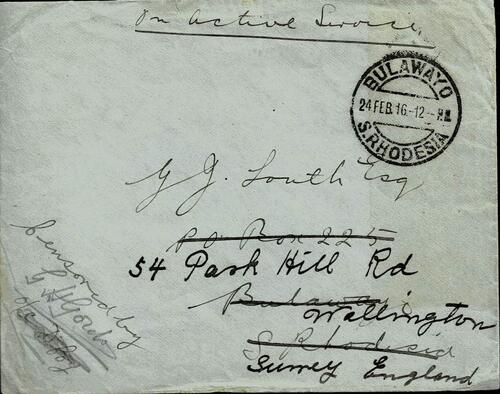 On Active Service
BULAWAYO
24 FEB. 16-12-PM
S. RHODESIA
G J. South Esq
PO Box 225
54 Park Hill Rd
Bulawayo
Wallington
S Rhodesia
Surrey England
Censored by